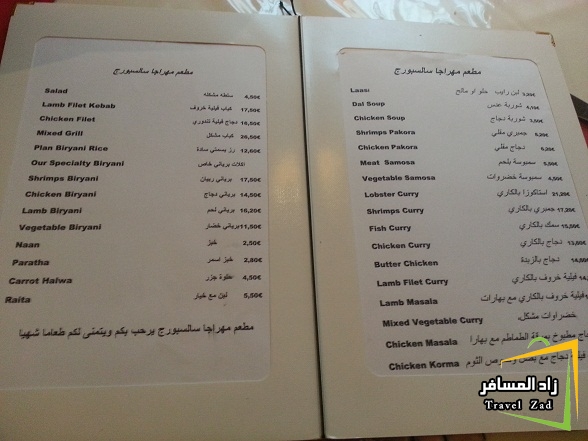 مطعم مهراجا سالسبورج
Salad سلطه مشكله 4,50€
Lamb Filet Kebab كباب فيلية خروف 17,50€
Chicken Filet دجاج فيلية تندوري
Mixed Grill كباب مشكل
Plan Biryani Rice رز بسمتي سادة
Our Specialty Biryani اكلات برياني خاص
Shrimps Biryani برياني ربيان 17,50€
Chicken Biryani برياني دجاج 14,50€
Lamb Biryani برياني لحم 16,20€
Vegetable Biryani برياني خضار 11,50€
Naan خبز 2,50€
Paratha خبز اسمر 2,80€
Carrot Halwa جزر 4,50€
Raita لبن مع خيار 5,50€
مطعم مهراجا سالسبورج يرحب بكم ويتمنى لكم طعاما شهيا
مطعم مهراجا سالسبورج
Lassi لبن رايب حلو او مالح
Dal Soup شوربة عدس
Chicken Soup شوربة دجاج
Shrimps Pakora جمبري مقلي
Chicken Pakora دجاج مقلي
Meat Samosa سمبوسة بلحم
Vegetable Samosa سمبوسة خضروات
Lobster Curry استاكوزا بالكاري 21,20€
Shrimps Curry جمبري بالكاري 17,20€
Fish Curry سمك بالكاري
Chicken Curry دجاج بالكاري
Butter Chicken دجاج بالزبدة
Lamb Filet Curry فيلية خروف بالكاري
Lamb Masala فيلية خروف بالكاري مع بهارات
Mixed Vegetable Curry خضراوات مشكل
Chicken Masala مطبوخ الطماطم مع بهارا
Chicken Korma دجاج مع الثوم
زاد المسافر
Travel Zad